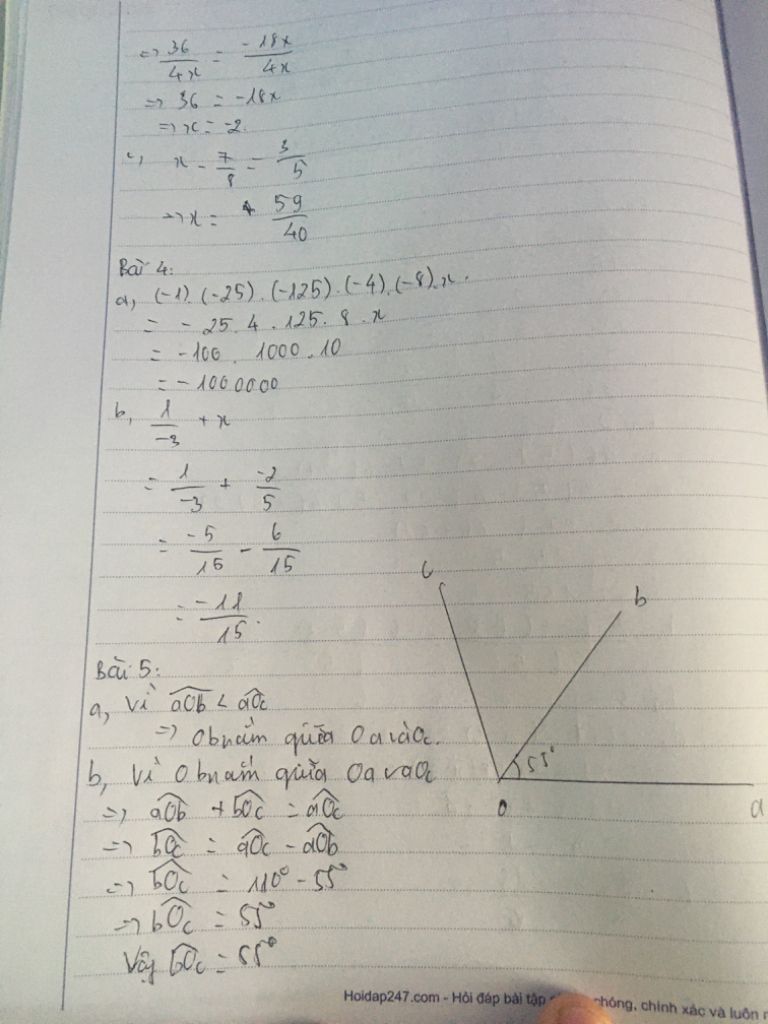 => 36/4x = -18x/4x
=> 36 = -18x
=> x = -2.
c, x - 7/8 = 3/5
=> x = 59/40
Bài 4:
a, (-1). (-25). (-125). (-4). (-8). x.
= - 25. 4. 125. 8. x
= -100. 1000. 10
= - 1000000
b, 1/-3 + x
= 1/-3 + -2/5
= -5/15 - 6/15
= -11/15.
Bài 5:
a, Vì aOb < aOc
=> Ob nằm giữa Oa và Oc.
b, Vì Ob nằm giữa Oa và Oc
=> aOb + bOc = aOc
=> bOc = aOc - aOb
=> bOc = 110° - 55°
=> bOc = 55°
Vậy bOc = 55°
c
b
55°
O
a
Hoidap247.com - Hỏi đáp bài tập chóng, chính xác và luôn